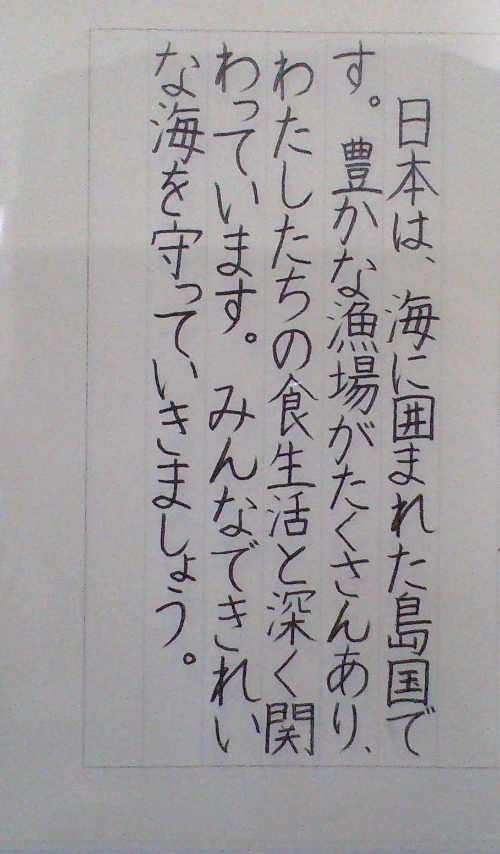 日本は、海に囲まれた島国で
す。豊かな漁場がたくさんあり、
わたしたちの食生活と深く関
わっています。みんなできれい
な海を守っていきましょう。